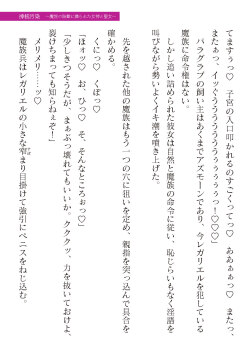 てますぅっ♡　子宮の入口叩かれるのすごくってっ♡　ああぁぁっ♡　またっ、
またぁっ、イッぐううううううううううううっっ！♡♡♡」
パラグラブの飼い主はあくまでアズモーンであり、今レガリエルを犯している
魔族に命令権はない。
しかし追い詰められた彼女は自然と魔族の命令に従い、恥じらいもなく淫語を
叫びながら勢いよくイキ潮を噴き上げた。
先を越された他の魔族はもう一つの穴に狙いを定め、親指を突っ込んで具合を
確かめる。
くにっ♡　くぽっ♡
「ほォッ♡　お、ひっ♡　そ、そんなところぉっ♡」
「少しきつそうだが、まぁ多少壊れてもいいか、クククッ、力を抜いておけよ、
裂けちまっても知らねぇぞ！」
メリメリ……ッ♡
魔族兵はレガリエルの小さな窄まり目掛けて強引にペニスをねじ込む。